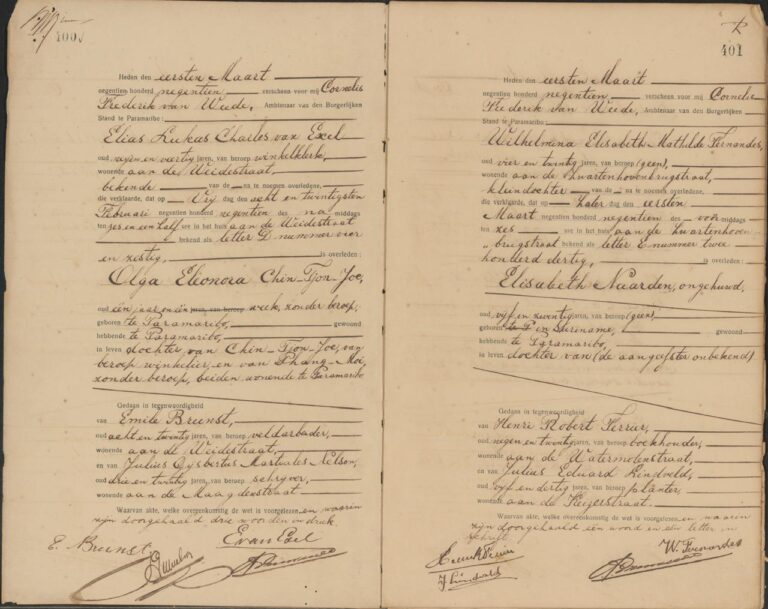 400
Heden den eersten Maart
negentien honderd negentien verscheen voor mij Cornelis
Frederik van Weede, Ambtenaar van den Burgerlijken
Stand te Paramaribo:
Elias Lukas Charles van Exel
oud en veertig jaren, van beroep winkelklerk,
wonende aan de Weidestraat,
bekende van de na te noemen overledene,
die verklaarde, dat op Vrij dag den acht en twintigsten
Februari negentien honderd negentien des na middags
ten zes en een half ure in het huis aan de Weidestraat
bekend als letter D nummer vier
en zestig,
is overleden:
Olga Eleonora Chin-Tjon-Joe,
oud één jaar en één jaren, van beroep week, zonder beroep,
geboren te Paramaribo,
gewoond
hebbende te Paramaribo,
in leven dochter van Chin-Tjon-Joe, van
beroep winkelier, en van Phang-Moi,
zonder beroep, beiden wonende te Paramaribo
Gedaan in tegenwoordigheid
van Emile Brunst,
oud acht en twintig jaren, van beroep veldarbeider,
wonende aan de Weidestraat,
en van Julius Gysbertus Nelson,
oud drie en twintig jaren, van beroep schryver,
wonende aan de Maagdenstraat
Waarvan akte, welke overeenkomstig de wet is voorgelezen en waarin
zijn doorgehaald drie woorden in druk.
E. Brunst.
E van Exel
401
Heden den eersten Maart
negentien honderd negentien verscheen voor mij Cornelis
Frederik van Weede, Ambtenaar van den Burgerlijken
Stand te Paramaribo:
Wilhelmina Elisabeth Mathilde Fernandes,
oud vier en twintig jaren, van beroep (geen),
wonende aan de Zwartenhovenbrugstraat,
kleindochter van de na te noemen overledene,
die verklaarde, dat op Zater dag den eersten
Maart negentien honderd negentien des voor middags
ten zes ure in het huis aan de Zwartenhoven
brugstraat bekend als letter E nummer twee
honderd dertig,
is overleden:
Elisabeth Naarden, ongehuwd,
oud vijf en zeventig jaren, van beroep (geen)
geboren in Suriname,
gewoond
hebbende te Paramaribo,
in leven dochter van (de aangeefster onbekend)
Gedaan in tegenwoordigheid
van Henri Robert Ferrier,
oud negen en twintig jaren, van beroep boekhouder,
wonende aan de Watermolenstraat,
en van Julius Eduard Lindveld,
oud vijf en dertig jaren, van beroep planter,
wonende aan de Keizerstraat.
Waarvan akte, welke overeenkomstig de wet is voorgelezen en waarin
zijn doorgehaald één woord en een letter in
schrift.
J Lindveld
W. Fernandes